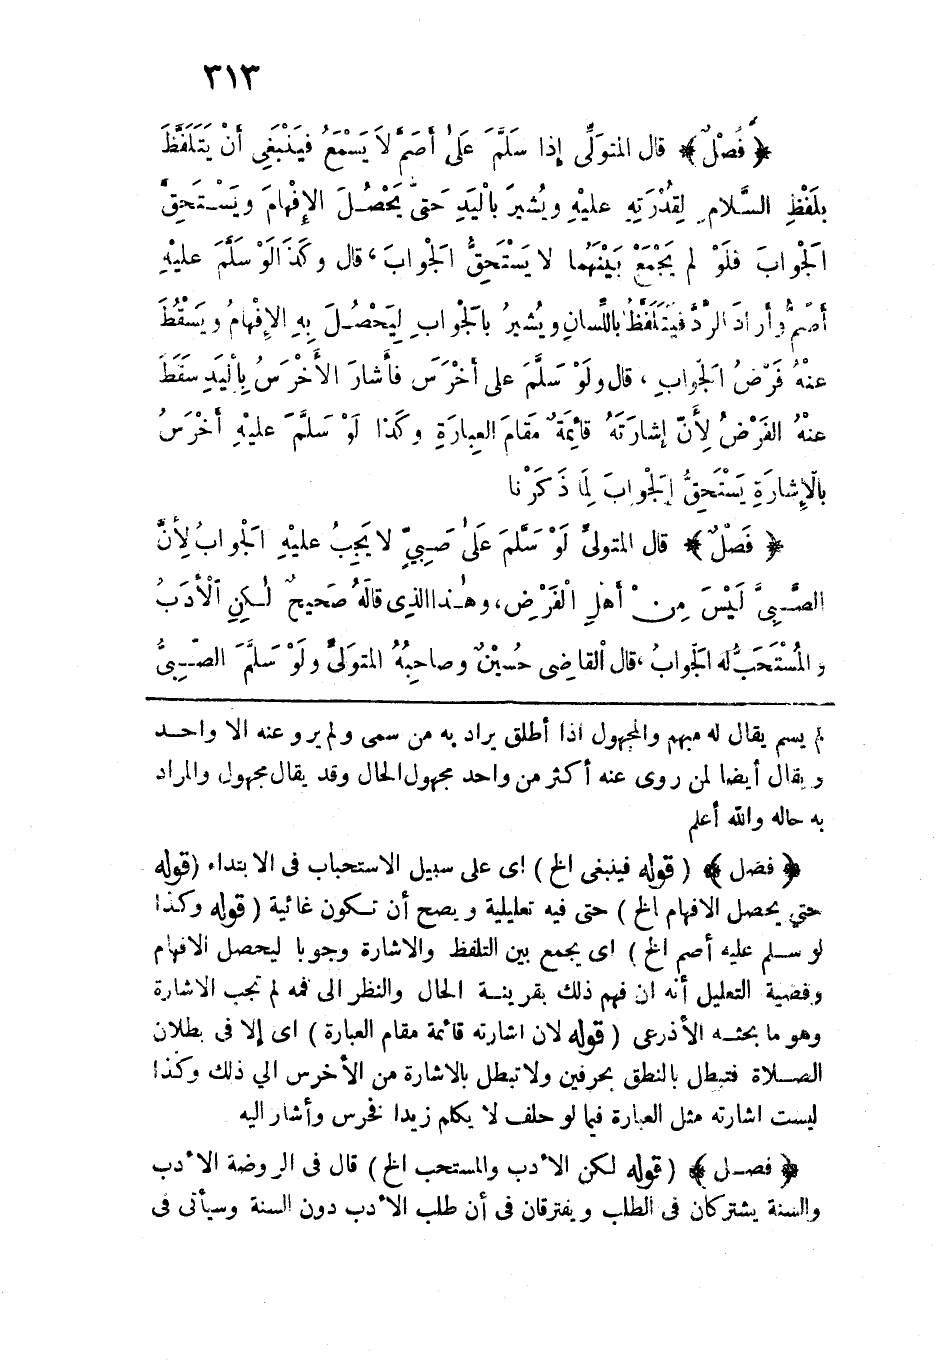 ٣١٣
﴿فَصْلٌ﴾ قال المتوَلِّى إذا سَلَّمَ عَلَى أَصَمَّ لاَ يَسْمَعُ فَيَنْبَغِى أَنْ يَتَلَفَّظَ
بِلَفْظِ السَّلامِ لِقُدْرَتِهِ عليْهِ ويُشيرَ بالْيَدِ حَتَّى يَحْصُلَ الإِفْهامَ ويَسْتَحِقَّ
الجْوابَ فلَوْ لم يَجْمَعْ بَيْنَهُما لا يَسْتَحِقُّ الجْوابَ، قال وكَذَا لَوْ سَلَّمَ عليْهِ
أَصَمُّ وأَرادَ الرَّدَّ فَيَتَلَفَّظُ باللِّسانِ ويُشيرُ بالجْوابِ لِيَحْصُلَ بِهِ الإِفْهامُ ويَسْقُطَ
عنْهُ فَرْضُ الجْوابِ، قال ولَوْ سَلَّمَ على أَخْرَسَ فأَشارَ الأَخْرَسُ بِالْيَدِ سقَطَ
عنْهُ الفَرْضُ لِأَنَّ إشارَتَهُ قائِمَةٌ مقَامَ العِبارَةِ وكَذا لَوْ سَلَّمَ عليْهِ أَخْرَسُ
بالإِشارَةِ يَسْتَحِقُّ الجْوابَ لِمَا ذَكَرْنا
﴿فَصْلٌ﴾ قال المتولىّ لَوْ سَلَّمَ عَلَى صَبِىٍّ لا يَجِبُ عليْهِ الجْوابُ لِأَنَّ
الصَّبِىَّ لَيْسَ مِنْ أَهْلِ الْفَرْضِ، وهٰذا الذِى قالَهُ صَحيحٌ لٰكِنِ الْأَدَبُ
والمُسْتَحَبُّ لهُ الجْوابُ، قال القاضِى حُسَيْنٌ وصاحِبُهُ المتَوَلىِّ ولَوْ سَلَّمَ الصَّبِىُّ
لم يسم يقال له مبهم والمجهول اذا أطلق يراد به من سمى ولم يرو عنه الا واحد
ويقال أيضا لمن روى عنه أكثر من واحد مجهول الحال وقد يقال مجهول والمراد
به حاله والله أعلم
﴿فصل﴾ (قوله فينبغى الخ) اى على سبيل الاستحباب فى الابتداء (قوله
حتى يحصل الافهام الخ) حتى فيه تعليلية ويصح أن تكون غائية (قوله وكذا
لو سلم عليه أصم الخ) اى يجمع بين التلفظ والاشارة وجوبا ليحصل الافهام
وقضية التعليل أنه ان فهم ذلك بقرينة الحال والنظر الى فمه لم تجب الاشارة
وهو ما بحثه الأذرعى (قوله لان اشارته قائمة مقام العبارة) اى إلا فى بطلان
الصلاة فتبطل بالنطق بحرفين ولا تبطل بالاشارة من الأخرس الي ذلك وكذا
ليست اشارته مثل العبارة فيما لو حلف لا يكلم زيدا فخرس وأشار اليه
﴿فصل﴾ (قوله لكن الأدب والمستحب الخ) قال فى الروضة الأدب
والسنة يشتركان فى الطلب ويفترقان فى أن طلب الأدب دون السنة وسيأتى فى